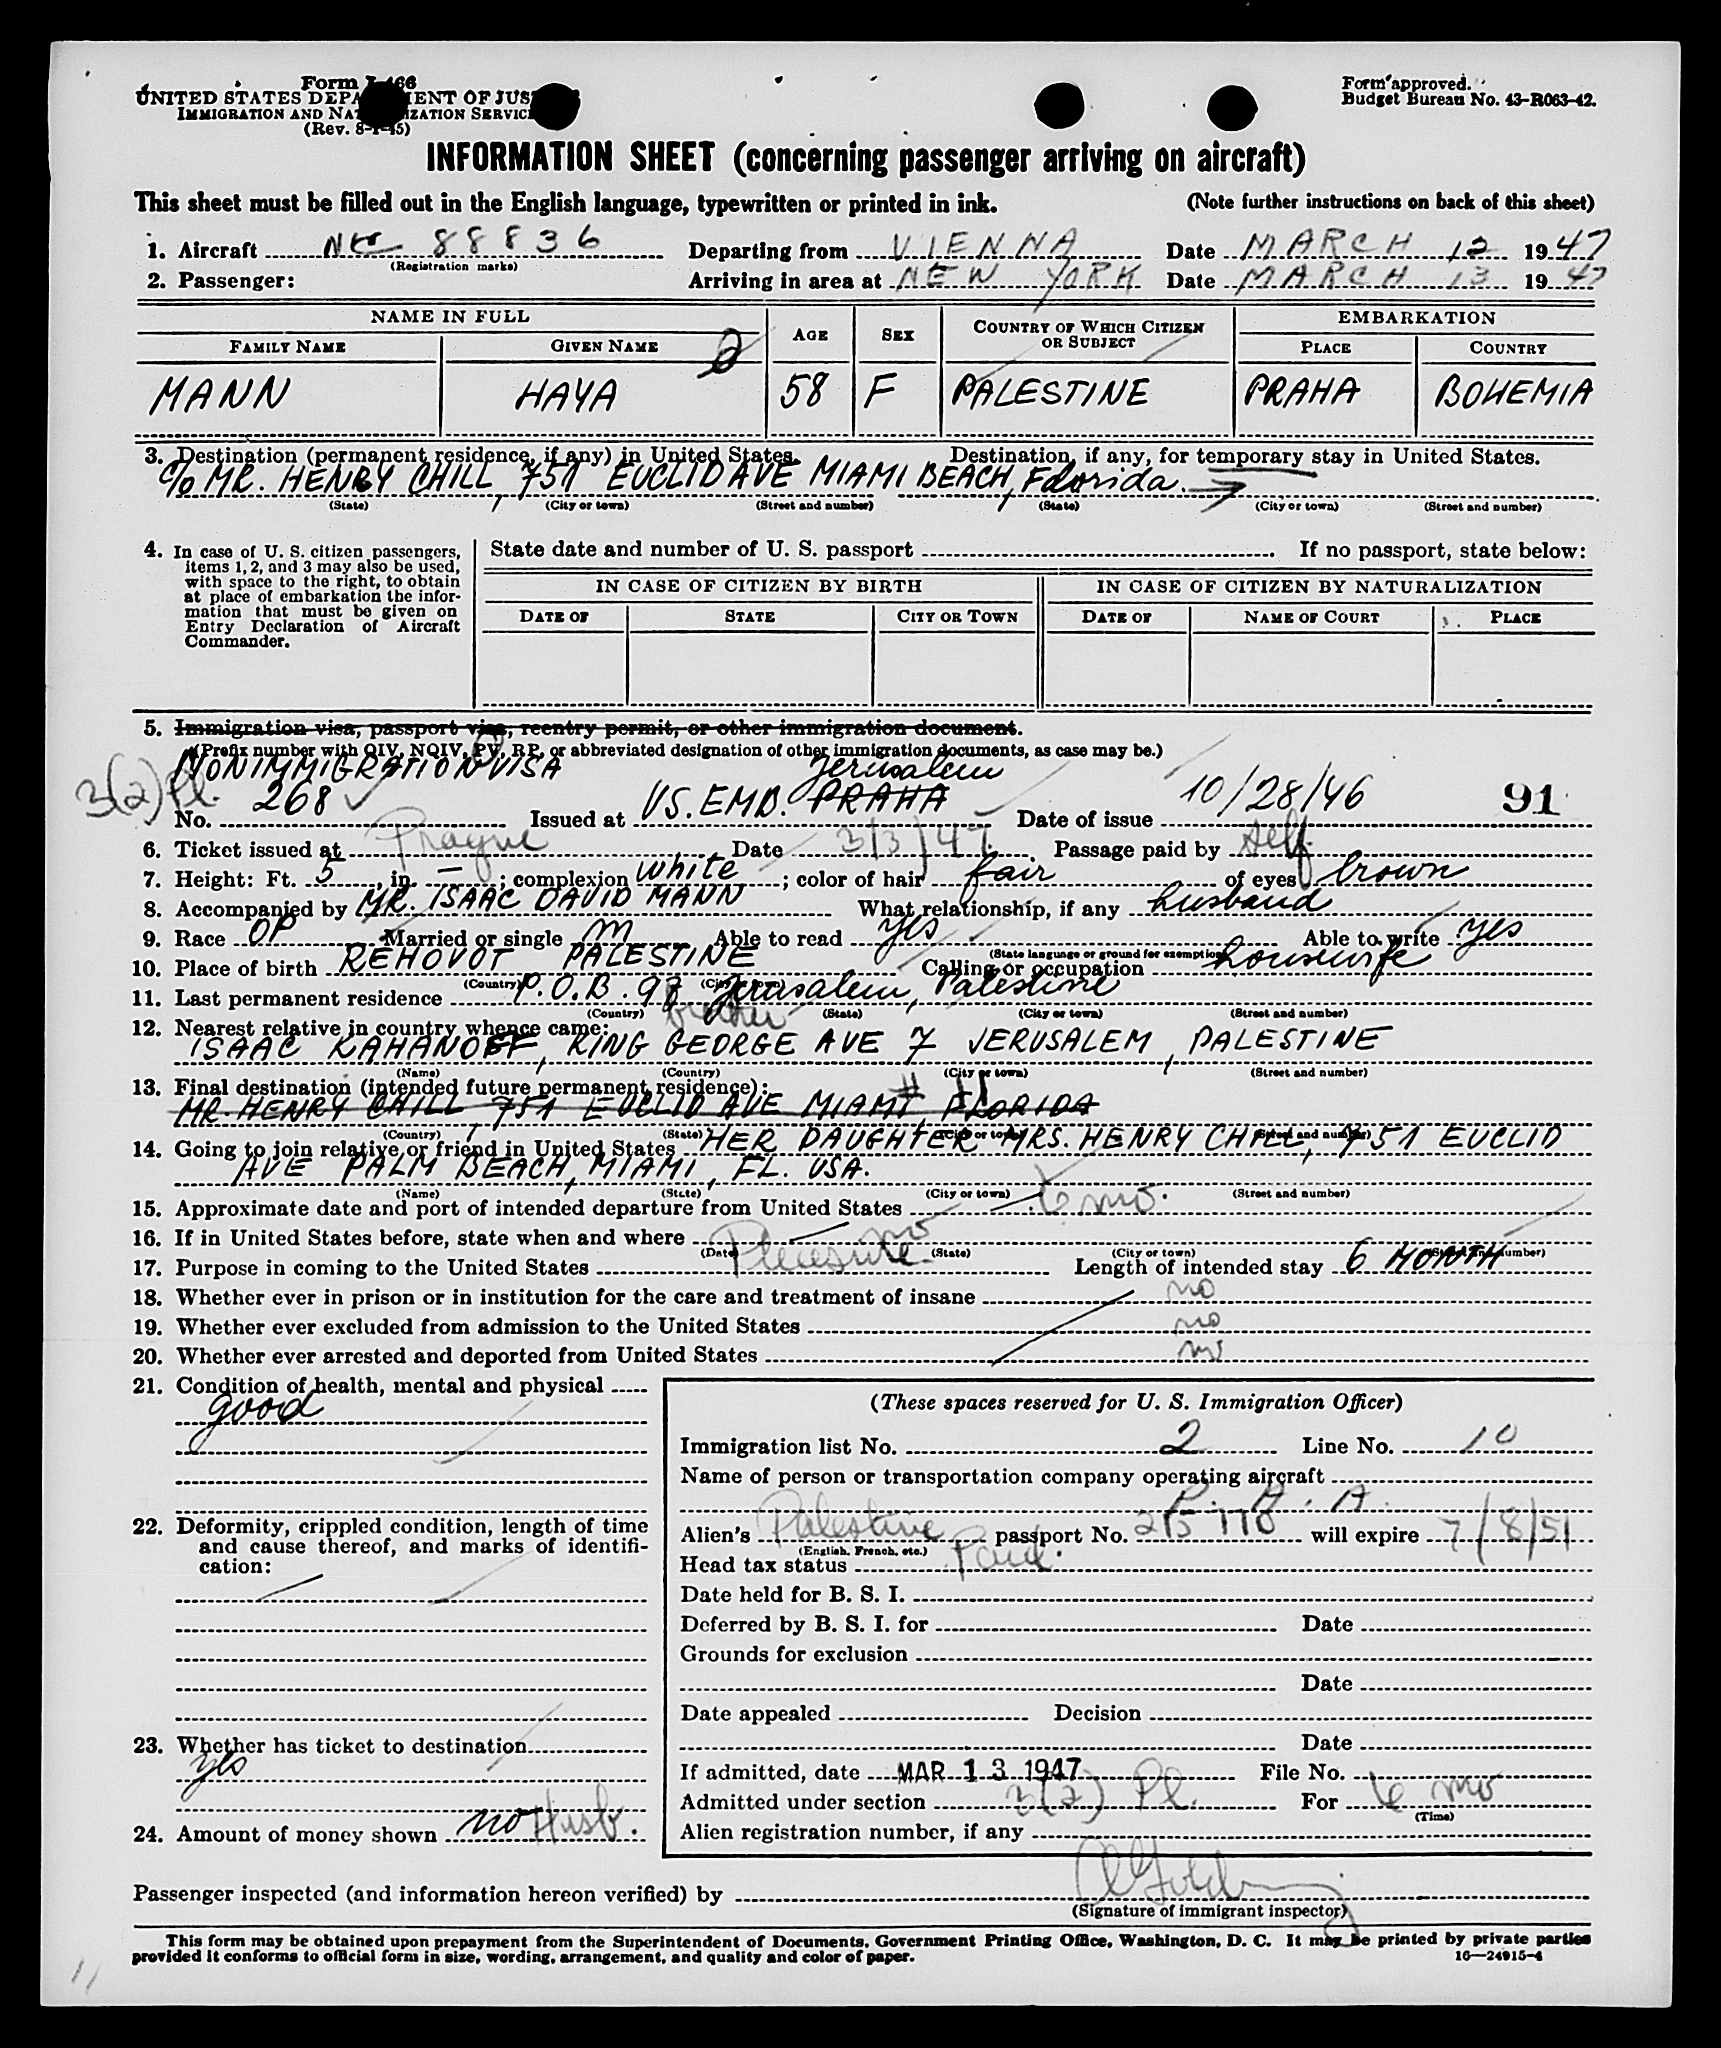 Form I-466
UNITED STATES DEPARTMENT OF JUSTICE
IMMIGRATION AND NATURALIZATION SERVICE
(Rev. 8-1-45)
Form approved.
Budget Bureau No. 43-R063-42.
INFORMATION SHEET (concerning passenger arriving on aircraft)
This sheet must be filled out in the English language, typewritten or printed in ink. (Note further instructions on back of this sheet)
1. Aircraft NC 88836 Departing from VIENNA Date MARCH 12 1947
(Registration marks)
2. Passenger: Arriving in area at NEW YORK Date MARCH 13 1947
NAME IN FULL AGE SEX COUNTRY OF WHICH CITIZEN OR SUBJECT EMBARKATION
FAMILY NAME GIVEN NAME 2 PLACE COUNTRY
MANN HAYA 58 F PALESTINE PRAHA BOHEMIA
3. Destination (permanent residence, if any) in United States. Destination, if any, for temporary stay in United States.
c/o MR. HENRY CHILL, 751 EUCLID AVE MIAMI BEACH, Florida.
(State) (City or town) (Street and number) (State) (City or town) (Street and number)
4. In case of U. S. citizen passengers, items 1, 2, and 3 may also be used, with space to the right, to obtain at place of embarkation the information that must be given on Entry Declaration of Aircraft Commander.
State date and number of U. S. passport . If no passport, state below:
IN CASE OF CITIZEN BY BIRTH IN CASE OF CITIZEN BY NATURALIZATION
DATE OF STATE CITY OR TOWN DATE OF NAME OF COURT PLACE
5. Immigration visa, passport visa, reentry permit, or other immigration document.
(Prefix number with QIV, NQIV, PV, RP, or abbreviated designation of other immigration documents, as case may be.)
NONIMMIGRATION VISA Jerusalem
3(2) Pl. No. 268 Issued at US. EMB. PRAHA Date of issue 10/28/46 91
6. Ticket issued at Prague Date 3/3/47 Passage paid by self
7. Height: Ft. 5, in. —; complexion white; color of hair fair of eyes brown
8. Accompanied by MR. ISAAC DAVID MANN What relationship, if any husband
9. Race OP Married or single m Able to read yes Able to write yes
(State language or ground for exemption)
10. Place of birth REHOVOT PALESTINE Calling or occupation housewife
(Country) (City or town)
11. Last permanent residence P.O.B. 97 Jerusalem, Palestine
(Country) (State) (City or town) (Street and number)
12. Nearest relative in country whence came: brother
ISAAC KAHANOFF, KING GEORGE AVE 7 JERUSALEM, PALESTINE
(Name) (Country) (City or town) (Street and number)
13. Final destination (intended future permanent residence): # 11
MR. HENRY CHILL, 751 EUCLID AVE MIAMI, FLORIDA
(Country) (State) (City or town) (Street and number)
14. Going to join relative or friend in United States HER DAUGHTER MRS. HENRY CHILL, 751 EUCLID
AVE PALM BEACH, MIAMI, FL. USA.
(Name) (State) (City or town) (Street and number)
15. Approximate date and port of intended departure from United States 6 mo.
16. If in United States before, state when and where no
(Date) (State) (City or town) (Street and number)
17. Purpose in coming to the United States Pleasure Length of intended stay 6 MONTH
18. Whether ever in prison or in institution for the care and treatment of insane no
19. Whether ever excluded from admission to the United States no
20. Whether ever arrested and deported from United States no
21. Condition of health, mental and physical
good
22. Deformity, crippled condition, length of time and cause thereof, and marks of identification:
23. Whether has ticket to destination
yes
24. Amount of money shown no Husb.
(These spaces reserved for U. S. Immigration Officer)
Immigration list No. 2 Line No. 10
Name of person or transportation company operating aircraft
P. A. A.
Alien's Palestine passport No. 215770 will expire 7/8/51
(English, French, etc.)
Head tax status Paid.
Date held for B. S. I.
Deferred by B. S. I. for Date
Grounds for exclusion
Date
Date appealed Decision
Date
If admitted, date MAR 13 1947 File No.
Admitted under section 3(2) Pl. For 6 mo
(Time)
Alien registration number, if any
Passenger inspected (and information hereon verified) by
(Signature of immigrant inspector)
This form may be obtained upon prepayment from the Superintendent of Documents, Government Printing Office, Washington, D. C. It may be printed by private parties
provided it conforms to official form in size, wording, arrangement, and quality and color of paper. 16—24915-4
11